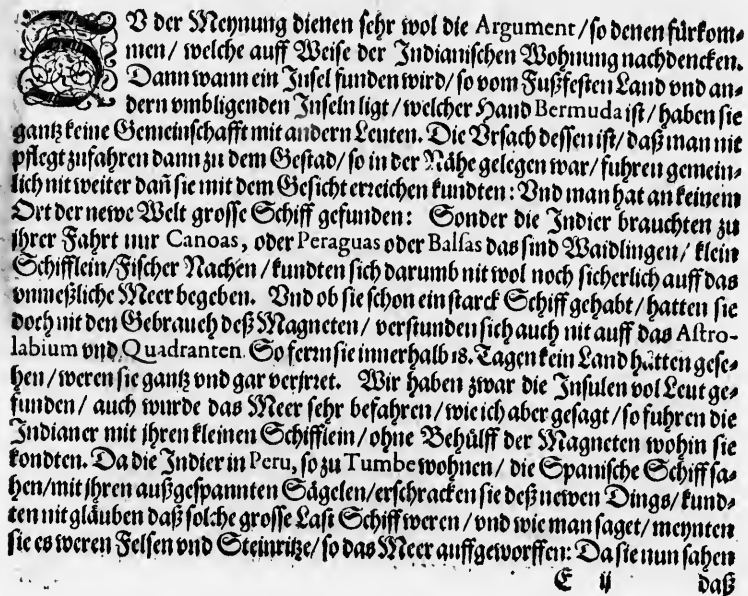 ZU der Meynung dienen sehr wol die Argument / so denen fürkom-
men / welche auff Weise der Indianischen Wohnung nachdencken.
Dann wann ein Insel funden wird / so vom Fußfesten Land vnd an-
dern vmbligenden Inseln ligt / welcher Hand Bermuda ist / haben sie
gantz keine Gemeinschafft mit andern Leuten. Die Vrsach dessen ist / daß man nit
pflegt zufahren dann zu dem Gestad / so in der Nähe gelegen war / fuhren gemein-
lich nit weiter dañ sie mit dem Gesicht erreichen kundten: Vnd man hat an keinem
Ort der newe Welt grosse Schiff gefunden: Sonder die Indier brauchten zu
jhrer Fahrt nur Canoas, oder Peraguas oder Balsas das sind Waidlingen / klein
Schifflein / Fischer Nachen / kundten sich darumb nit wol noch sicherlich auff das
vnmeßliche Meer begeben. Vnd ob sie schon ein starck Schiff gehabt / hatten sie
doch nit den Gebrauch deß Magneten / verstunden sich auch nit auff das Astro-
labium vnd Quadranten. So fern sie innerhalb 18. Tagen kein Land hätten gese-
hen / weren sie gantz vnd gar verjrret. Wir haben zwar die Insulen vol Leut ge-
funden / auch wurde das Meer sehr befahren / wie ich aber gesagt / so fuhren die
Indianer mit jhren kleinen Schifflein / ohne Behülff der Magneten wohin sie
kondten. Da die Indier in Peru, so zu Tumbe wohnen / die Spanische Schiff sa-
hen / mit jhren außgespannten Sägelen / erschracken sie deß newen Dings / kund-
ten nit gläuben daß solche grosse Last Schiff weren / vnd wie man saget / meynten
sie es weren Felsen vnd Steinritze / so das Meer auffgeworffen: Da sie nun sahen
E ij daß